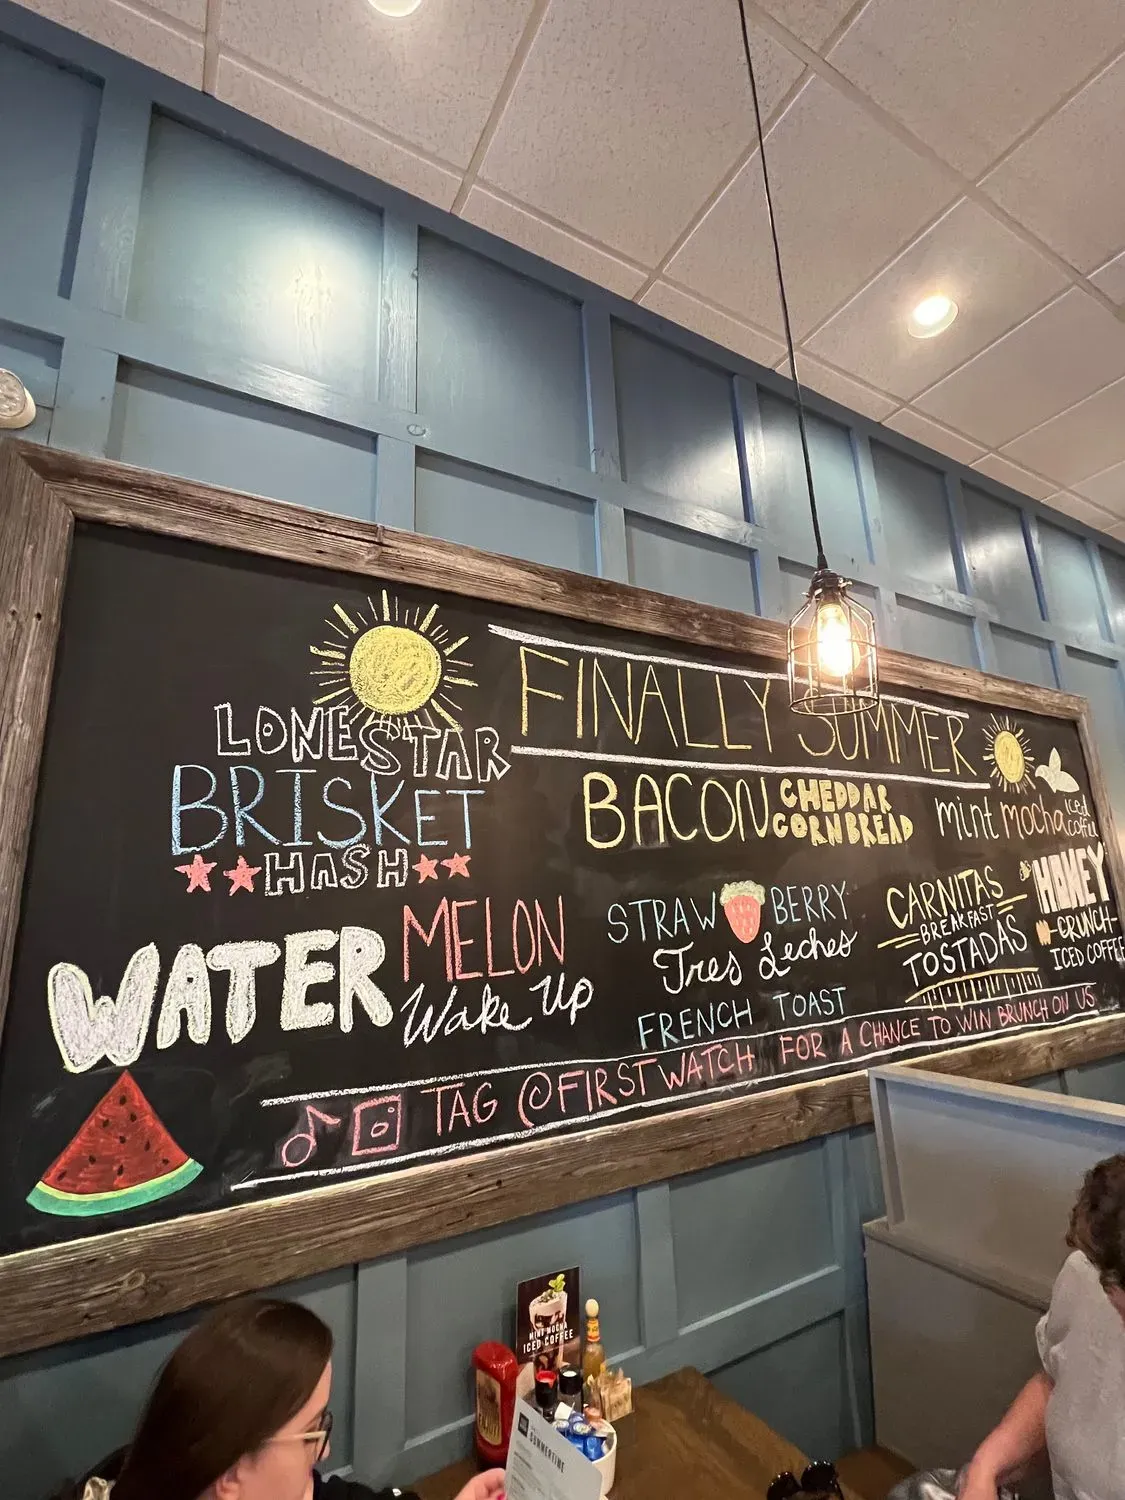 FINALLY SUMMER
LONESTAR
BRISKET
HASH
BACON CHEDDAR
CORNBREAD
mint mocha iced
coffee
WATER MELON
Wake Up
STRAW BERRY
Tres Leches
FRENCH TOAST
CARNITAS
BREAKFAST
TOSTADAS
HONEY
N-CRUNCH-
ICED COFFEE
TAG @FIRSTWATCH FOR A CHANCE TO WIN BRUNCH ON US
MINT MOCHA
ICED COFFEE
SUMMERTIME